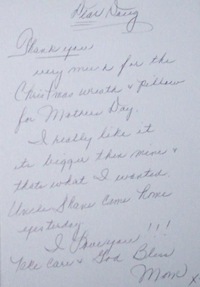 Dear Doug
Thank you
very much for the
Christmas wreath & pillow
for Mothers Day.
I really like it
its bigger than mine &
thats what I wanted.
Uncle Slave came home
yesterday
I love you!!!
Take care & God Bless
Mom X